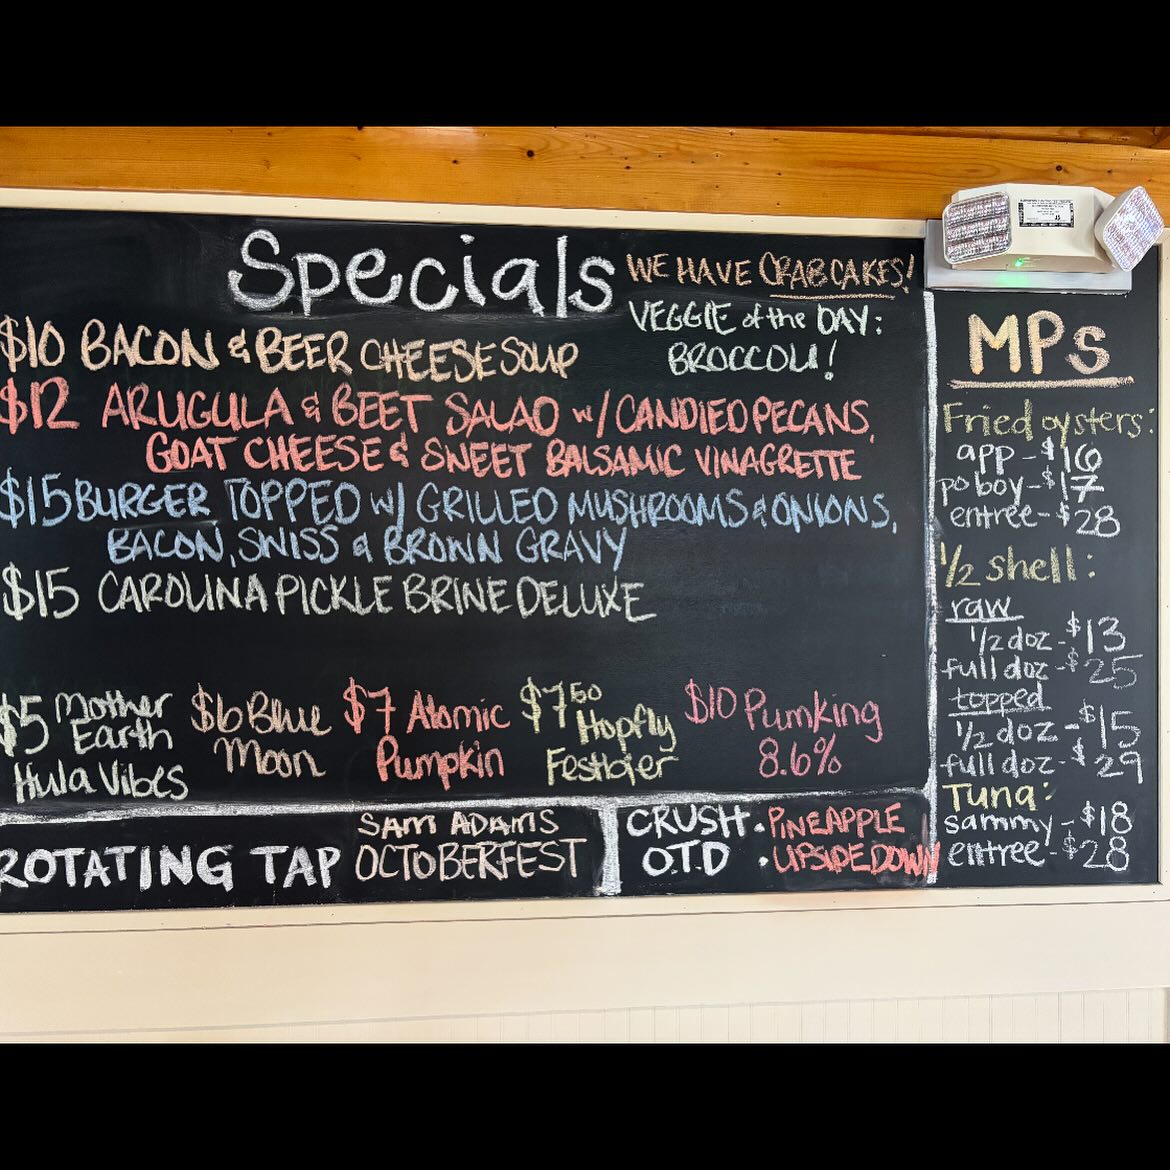 Specials
WE HAVE CRABCAKES!
VEGGIE of the DAY:
BROCCOLI!
$10 BACON & BEER CHEESE SOUP
$12 ARUGULA & BEET SALAD w/ CANDIED PECANS,
GOAT CHEESE & SWEET BALSAMIC VINAGRETTE
$15 BURGER TOPPED w/ GRILLED MUSHROOMS & ONIONS,
BACON, SWISS & BROWN GRAVY
$15 CAROLINA PICKLE BRINE DELUXE
$5 Mother
Earth
Hula Vibes
$6 Blue
Moon
$7 Atomic
Pumpkin
$7 50
Hopfly
Festbier
$10 Pumking
8.6%
ROTATING TAP
SAM ADAMS
OCTOBERFEST
CRUSH
O.T.D
• PINEAPPLE
• UPSIDE DOWN
MPs
Fried oysters:
app - $16
po boy - $17
entree - $28
1/2 shell:
raw
1/2 doz - $13
full doz - $25
topped
1/2 doz - $15
full doz - $29
Tuna:
sammy - $18
entree - $28